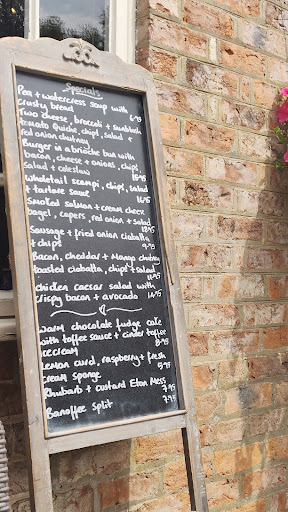 Specials
Pea + watercress soup with
crusty bread
Two cheese, broccoli + sunblush
tomato quiche, chips, salad +
red onion chutney
Burger in a brioche bun with
bacon, cheese + onions, chips
salad + coleslaw
Wholetail scampi, chips, salad
+ tartare sauce
Smoked salmon + cream cheese
bagel, capers, red onion + salad
Sausage + fried onion ciabatta
+ chips
Bacon, cheddar + Mango chutney
toasted ciabatta, chips + salad
Chicken caesar salad with
crispy bacon + avocado
Warm chocolate fudge cake
with toffee sauce + cinder toffee
icecream
Lemon curd, raspberry + fresh
cream sponge
Rhubarb + custard Eton Mess
7.95
Banoffee Split 7.95